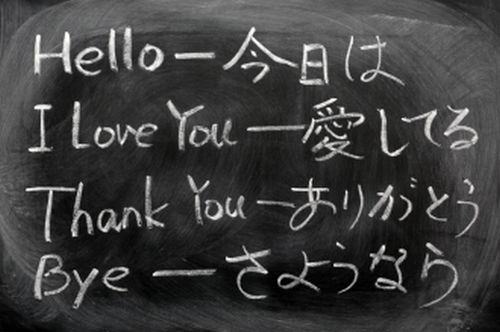 Hello — 今日は
I Love You — 愛してる
Thank You — ありがとう
Bye — さようなら